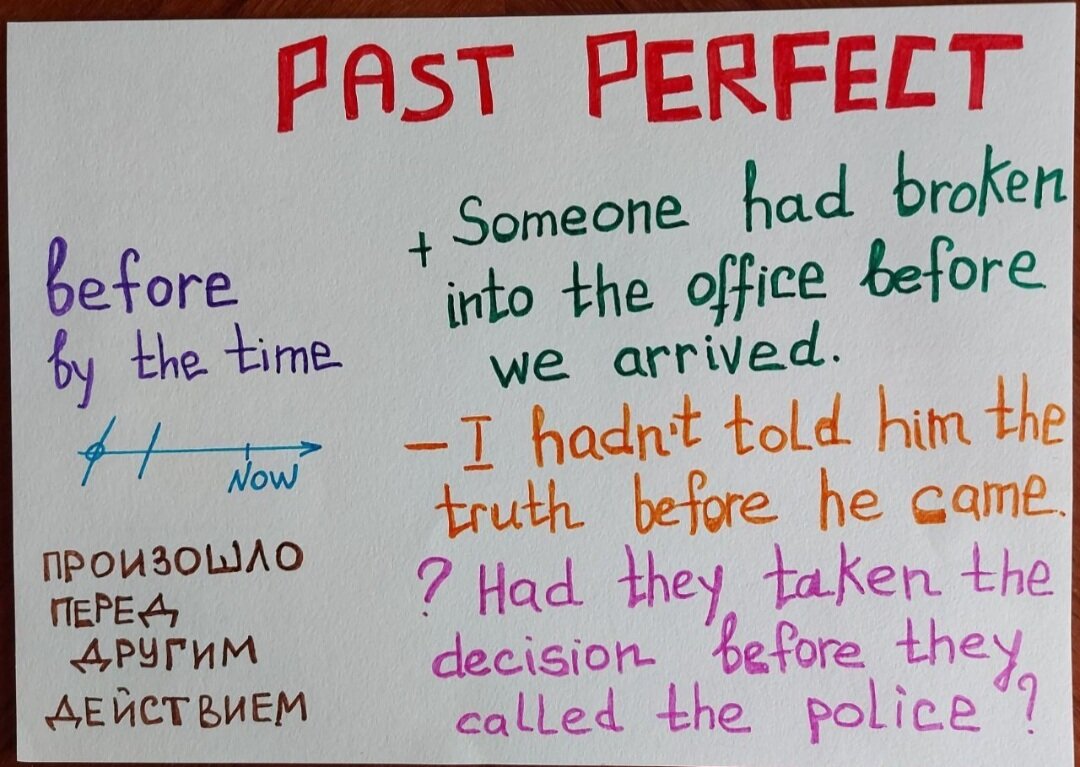 PAST PERFECT
before
by the time
Now
ПРОИЗОШЛО
ПЕРЕД
ДРУГИМ
ДЕЙСТВИЕМ
+ Someone had broken
into the office before
we arrived.
– I hadn't told him the
truth before he came.
? Had they taken the
decision before they
called the police?